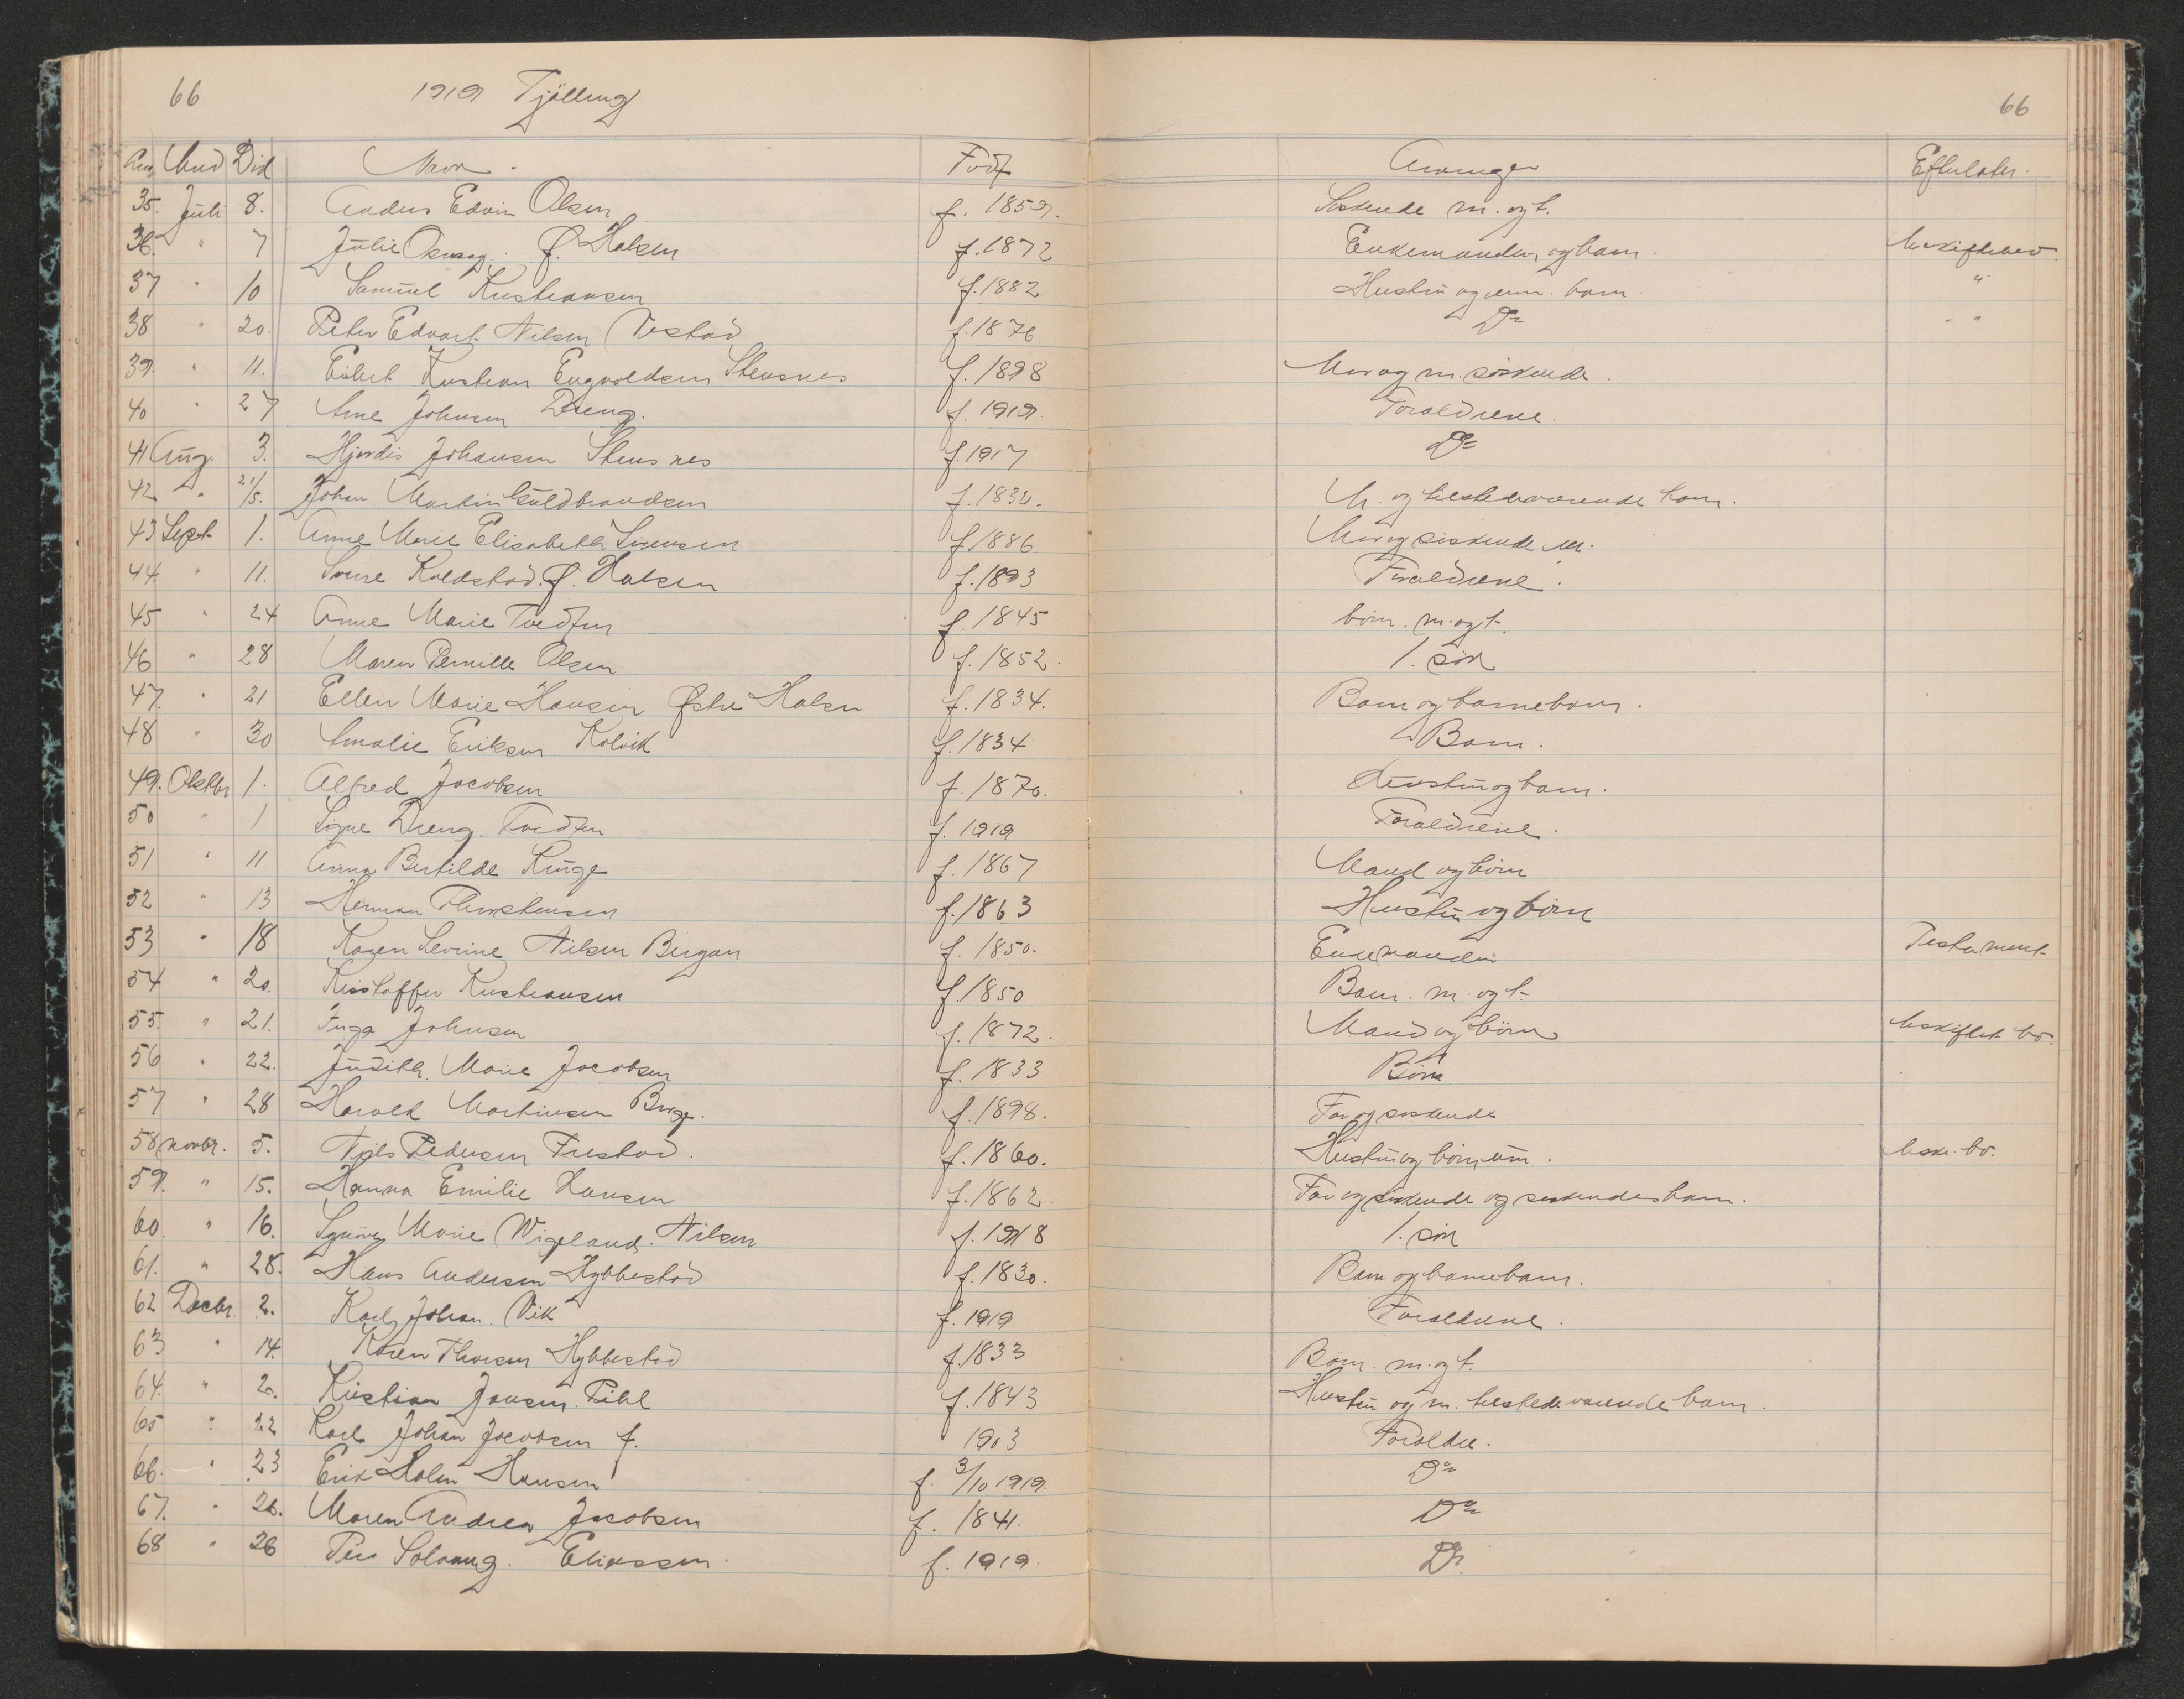 66 1919 Tjölling 66
Lno Mnd Död Navn. Född Arvinger Efterlater.
35. Juli 8. Anders Edvin Olsen f. 1859. Söskende m. og f.
36. " 7 Julie Ø. Halsen f. 1872 Enkemanden og barn. Uskiftet
37 " 10 Samuel Kristiansen f. 1882 Hustru og um. barn. "
38 " 20. Peter Edvart Nilsen Vestad f. 1876 Do "
39. " 11. Eilert Kristian Engvoldsen Stensnes f. 1898 Mor og m. söskende.
40 " 27 Arne Johnsen Dreng. f. 1919. Foraldrene.
41 Aug. 3. Hjordis Johansen Stensnes f. 1917 Do
42 " 21/5. Johan Martin Guldbrandsen f. 1832. M. og tilstedeværende barn.
43 Sept 1. Anne Marie Elisabeth Sörensen f. 1886 Mor og söskende m.
44 " 11. Sverre Koldstad. Ø. Halsen f. 1893 Foraldrene.
45 " 24 Anne Marie Tvedten f. 1845 börn. m. og f.
46 " 28 Maren Pernille Olsen f. 1852. 1. sön
47. " 21 Ellen Marie Hansen Østre Halsen f. 1834. Barn og barnebarn.
48 " 30 Amalie Eriksen Kolvik f. 1834 Barn.
49. Oktbr 1. Alfred Jacobsen f. 1870. Hustru og barn.
50 " 1 Signe Dreng. Tvedten f. 1919 Foraldrene.
51 " 11 Anna Bertilde Kringe f. 1867 Mand og börn
52 " 13 Herman Thorstensen f. 1863 Hustru og börn
53 " 18 Karen Severine Nilsen Bergan f. 1850. Enkemanden Testament
54 " 20. Kristoffer Kristiansen f. 1850 Barn. m. og f.
55. " 21. Inga Johnsen f. 1872. Mand og börn Uskiftet bo.
56 " 22. Judith Marie Jacobsen f. 1833 Börn
57 " 28 Harald Martinsen Berge. f. 1898. Far og söskende
58 novbr. 5. Nils Pedersen Fristad. f. 1860. Hustru og börn um. Usk. bo.
59. " 15. Hanna Emilie Hansen f. 1862. Far og söskende og söskendes barn.
60. " 16. Synöve Marie Wigeland. Nilsen f. 1918 1. sön
61. " 28. Hans Andersen Hybbestad f. 1830. Barn og barnebarn.
62 Decbr. 2. Karl Johan. Vik f. 1919 Foraldrene.
63 " 14. Karen Thorsen Hybbestad f. 1833 Börn. m. og f.
64. " 2. Kristian Jansen. Pihl f. 1843 Hustru og m. tilstedeværende barn.
65 " 22 Karl Johan Jacobsen f. 1903 Foraldre.
66. " 23 Erik Holm Hansen f. 3/10 1919. Do
67. " 26. Maren Andrea Jacobsen f. 1841. Do
68 " 26 Per Solvang. Eliassen. f. 1919. Do